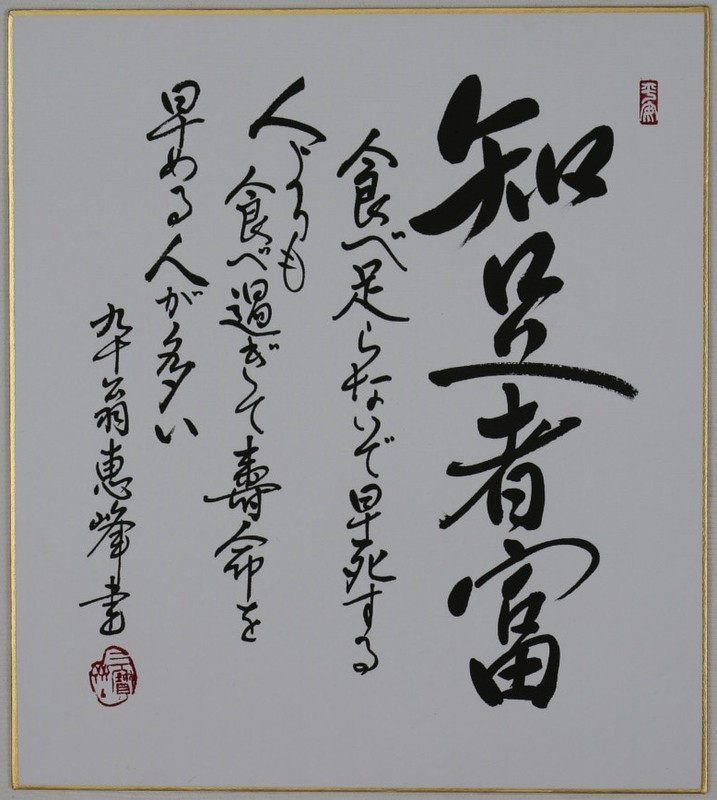 平安
知足者富
食べ足らないで早死する
人よりも
食べ過ぎて壽命を
早める人が多い
九十翁恵峰書